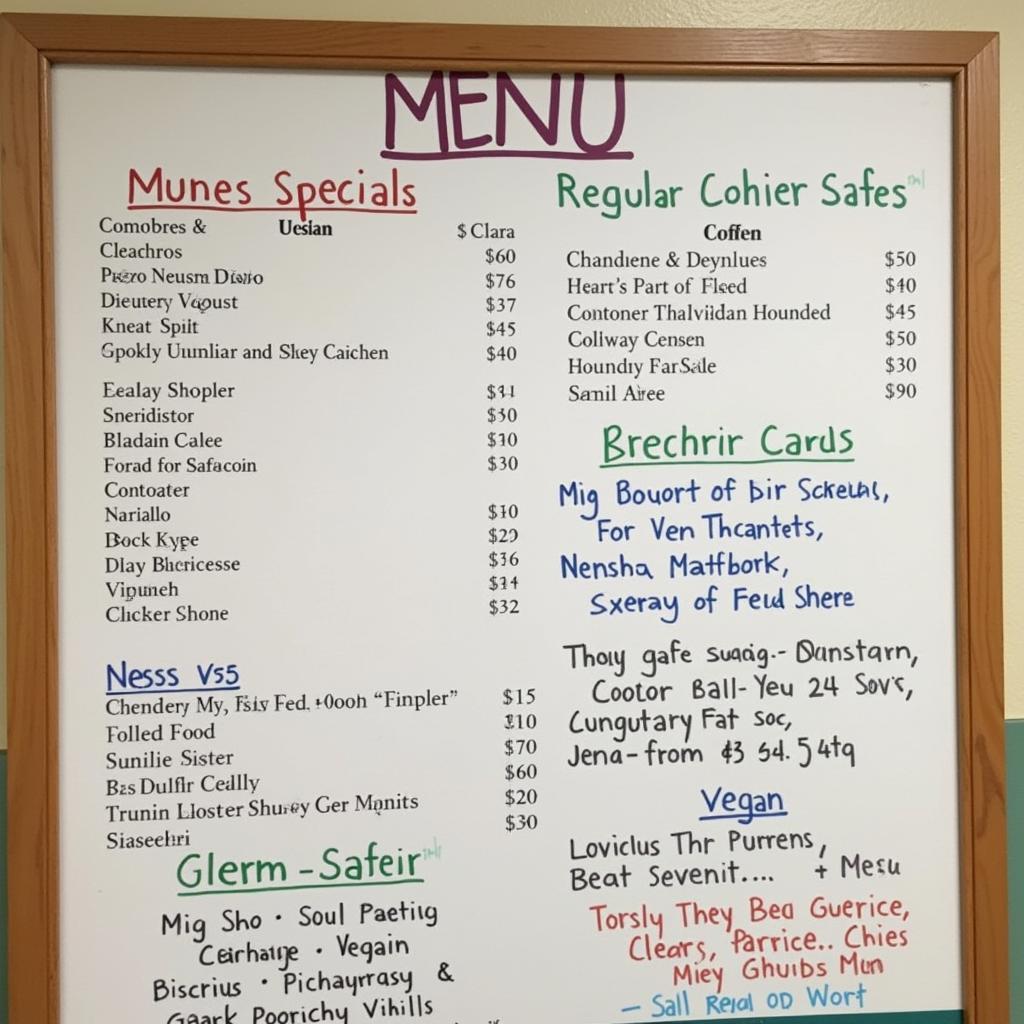 MENU
Munes Specials
Comobres & Uesian $ Clara
Cleachros $60
Neusm $76
Dieutery Vaqust $37
Kneat Spilt $45
Gpokly Uumliar and Skey Caichen $40
Eealay Shopler
Sneridistor $30
Bladain Calee $10
Forad for Safacoin $30
Contoater
Nariallo $10
Bock Kype
Dlay Bhericesse $36
Vipuneh
Clicker Shone $32
Nesss Vs5
Chendery My, Fed, "Finpler" $15
Folled Food
Sunilie Sister $70
Dulflr Cedlly $60
Trunin Lloster Ger Mqnits $20
Siaseehri $30
Glerm - Safeir
Mig Sho · Soul Paetiig
Ceirhatge · Vegain
Biscrius · Pichayrrasy &
Gaark Poorichy Vihills
Regular Cohier Safes
Coffen
Chandiene & Deynlues $50
Heart's Part of Fleed $40
Contoner Thalvildan Hounded $45
Collway Censen $50
Houndiy FarSale $30
Sanil Airee $90
Brechrir Cards
Mig Bouort of bir
For Ven Thcantets,
Nensha Matfbork,
Sxeray of Feud Shere
Thoıy gafe - Dunstarn,
Cootor Ball-Yeu 24 Sov's,
Cungutary Fat soc,
Jena-from $3 54. 54tq
Vegan
Loviclus Thr Purrens,
Beat Sevenit.... + Mesu
Torsly They Bea Guerice,
Clears, Parrice.. Chies
Miey Ghuibs Mun
- Sall Reıal OD Wort